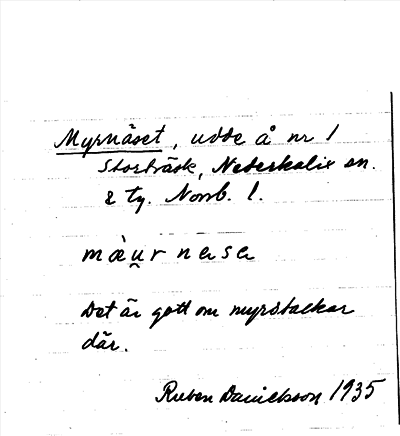 Myrnäset, udde å nr 1
Storträsk, Nederkalix sn.
& ty. Norrb. l.
mæ̀u̯r nesɐ
Det är gott om myrstackar
där.
Ruben Danielsson 1935